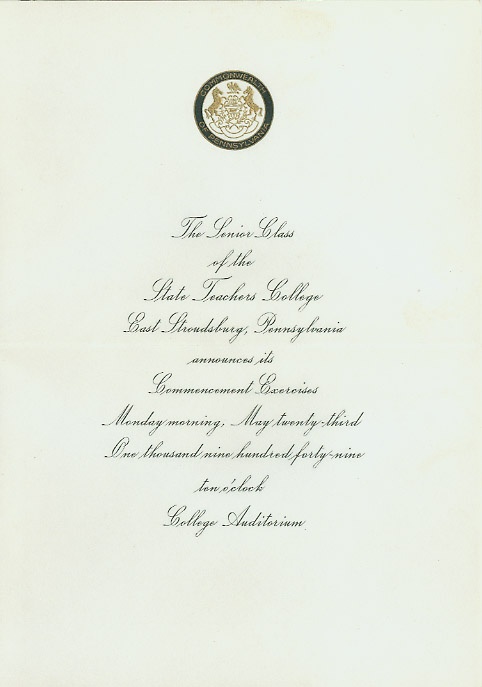 COMMONWEALTH
OF PENNSYLVANIA
The Senior Class
of the
State Teachers College
East Stroudsburg, Pennsylvania
announces its
Commencement Exercises
Monday morning, May twenty-third
One thousand nine hundred forty-nine
ten o'clock
College Auditorium